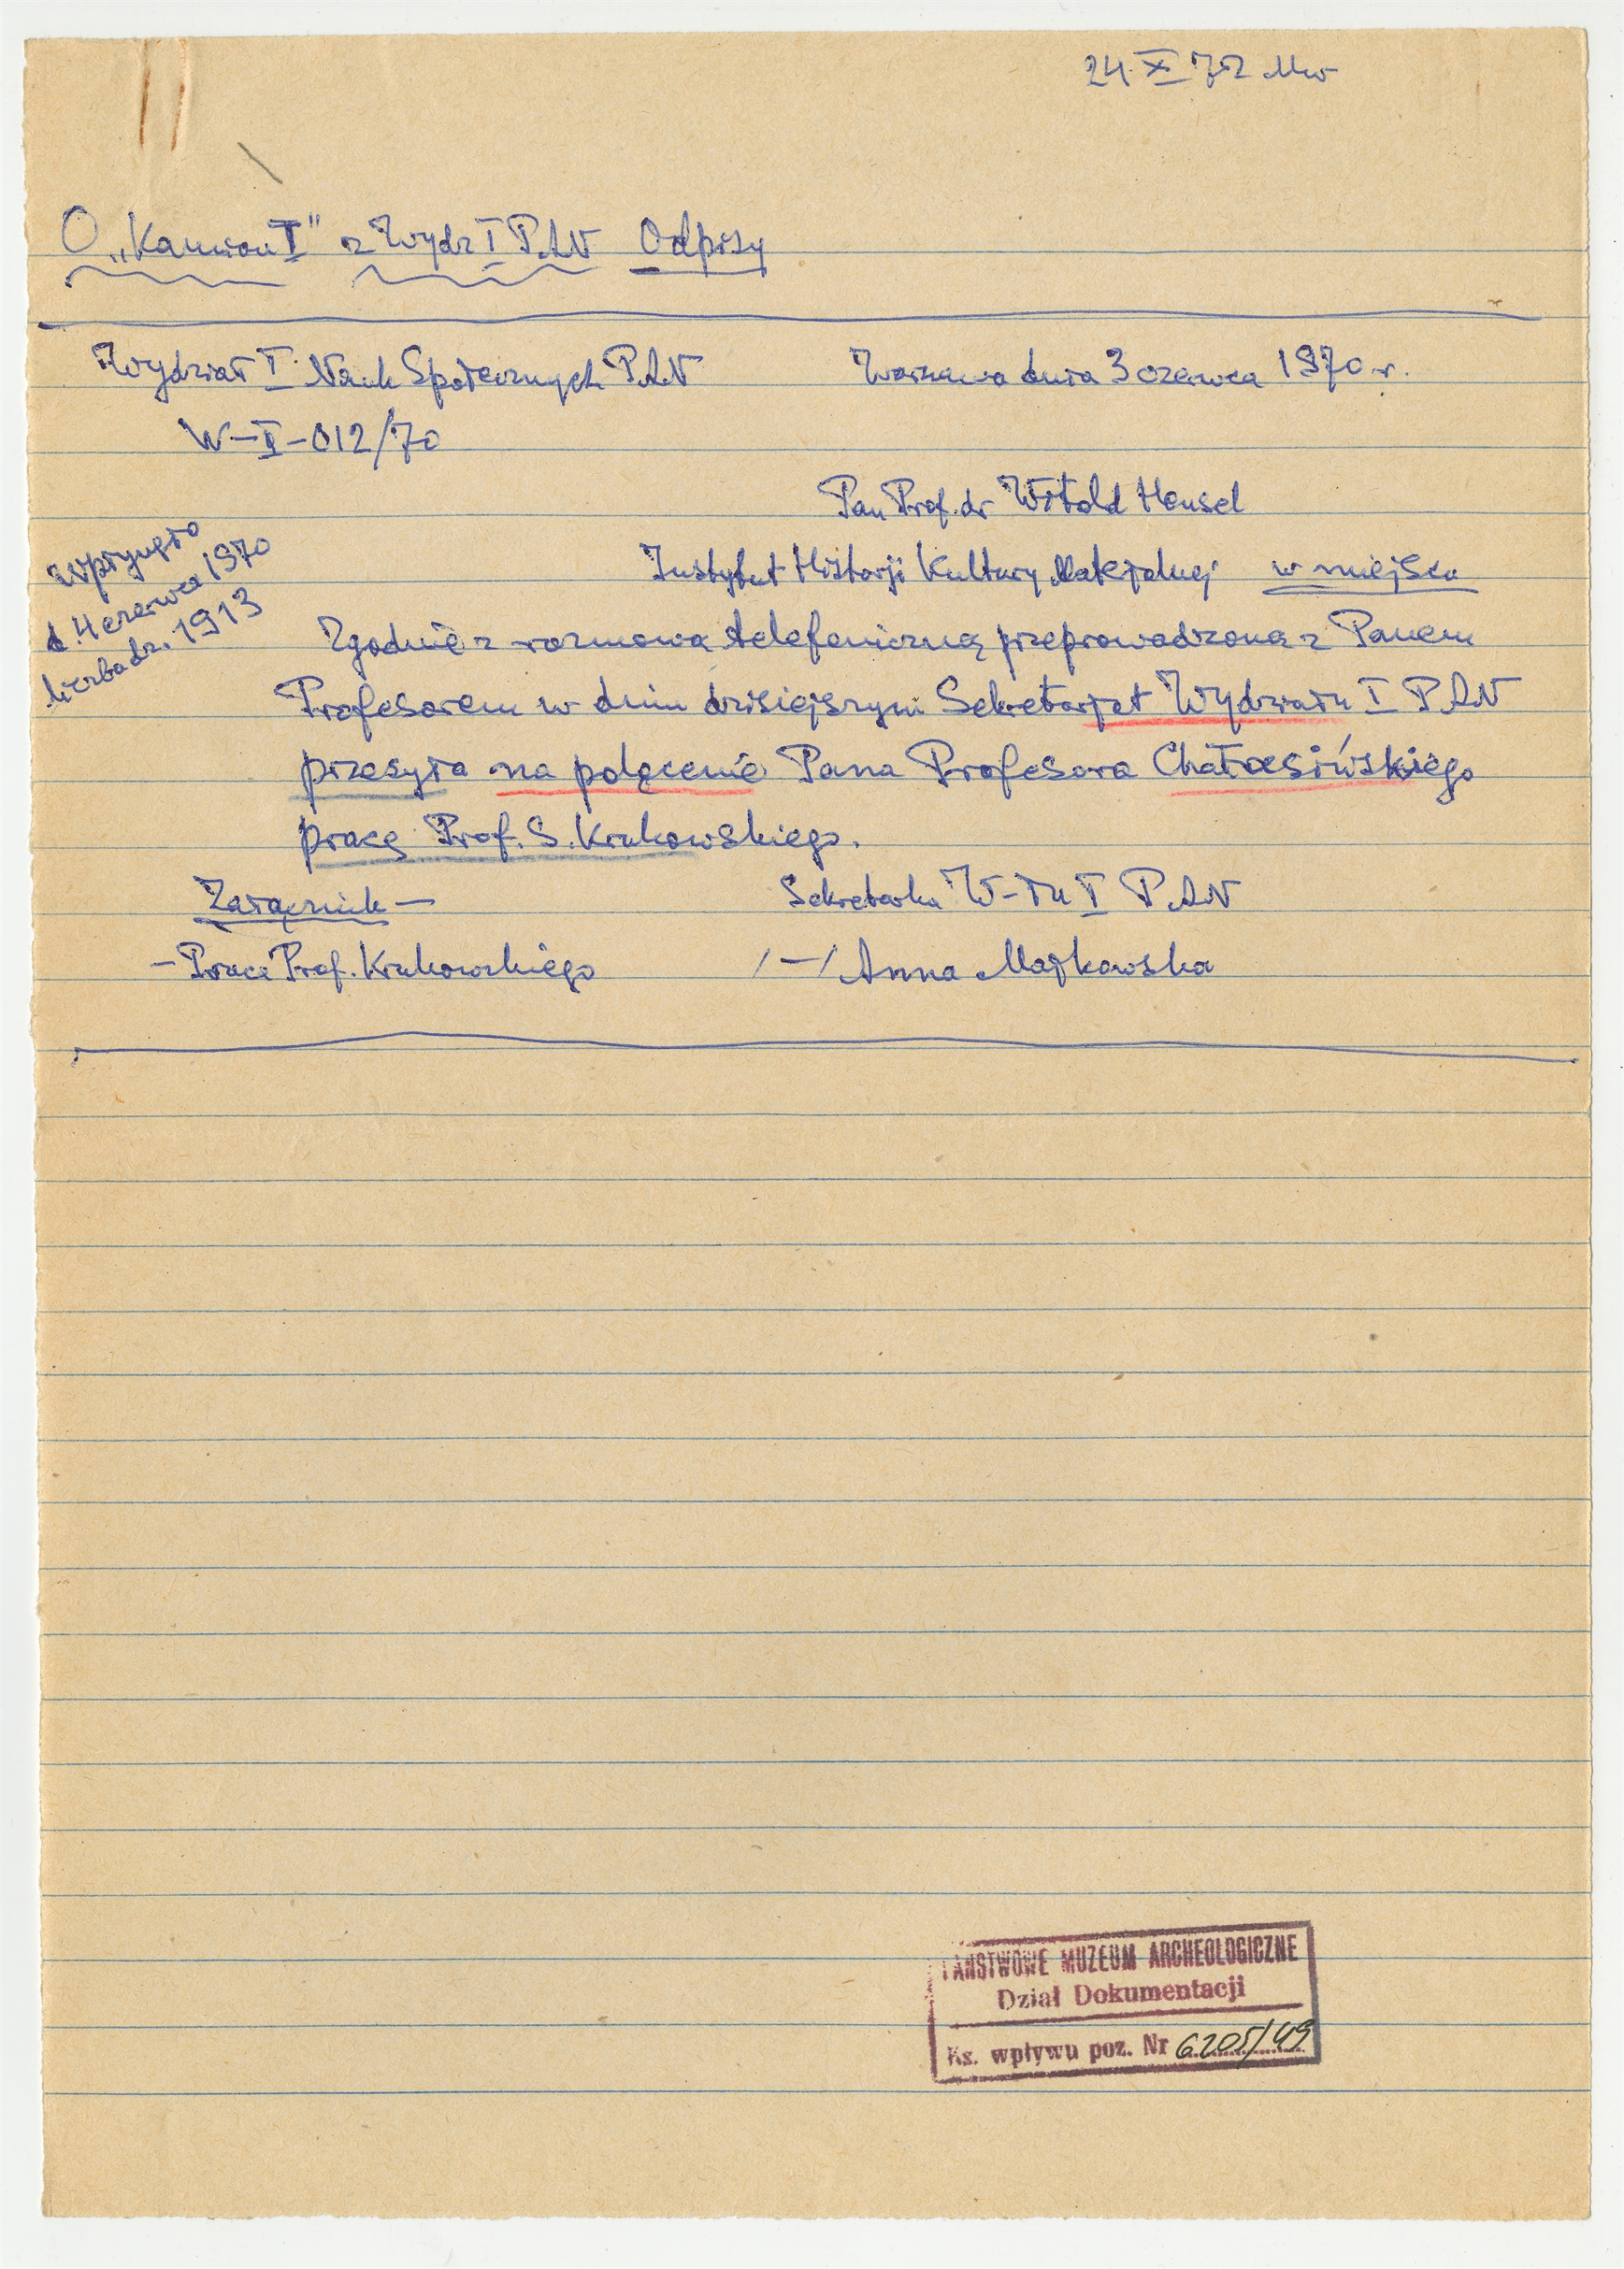 24 X 72
O „Kamion I” z Wydz I PAN Odpisy
Wydział I Nauk Społecznych PAN
Warszawa dnia 3 czerwca 1970 r.
W–I–012/70
Pan Prof. dr Witold Hensel
Instytut Historji Kultury Materjalnej w miejscu
Wpłynęło
d. 4 czerwca 1970
liczba dz. 1913
Zgodnie z rozmową telefoniczną przeprowadzoną z Panem
Profesorem w dniu dzisiejszym Sekretarjat Wydziału I PAN
przesyła na polęcenie Pana Profesora Chałasińskiego
pracę Prof. S. Krukowskiego.
Załącznik –
Sekretarka W–łu I PAN
– Praca Prof. Krukowskiego
/–/ Anna Majkowska
PAŃSTWOWE MUZEUM ARCHEOLOGICZNE
Dział Dokumentacji
Ks. wpływu poz. Nr 6205/49